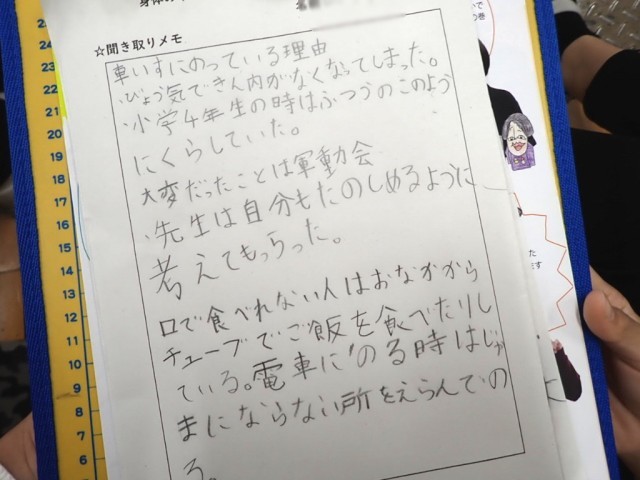 身体の
☆聞き取りメモ
車いすにのっている理由
・びょう気できん内がなくなってしまった。
・小学4年生の時はふつうのこのよう
にくらしていた。
大変だったことは軍動会
・先生は自分もたのしめるように
考えてもらった。
口で食べれない人はおなかから
チューブでご飯を食べたりし
ている。電車にのる時はじゃ
まにならない所をえらんでの
る。
25
24
23
22
21
20
19
18
17
16
15
14
13
12
11
10
9
8
7
6